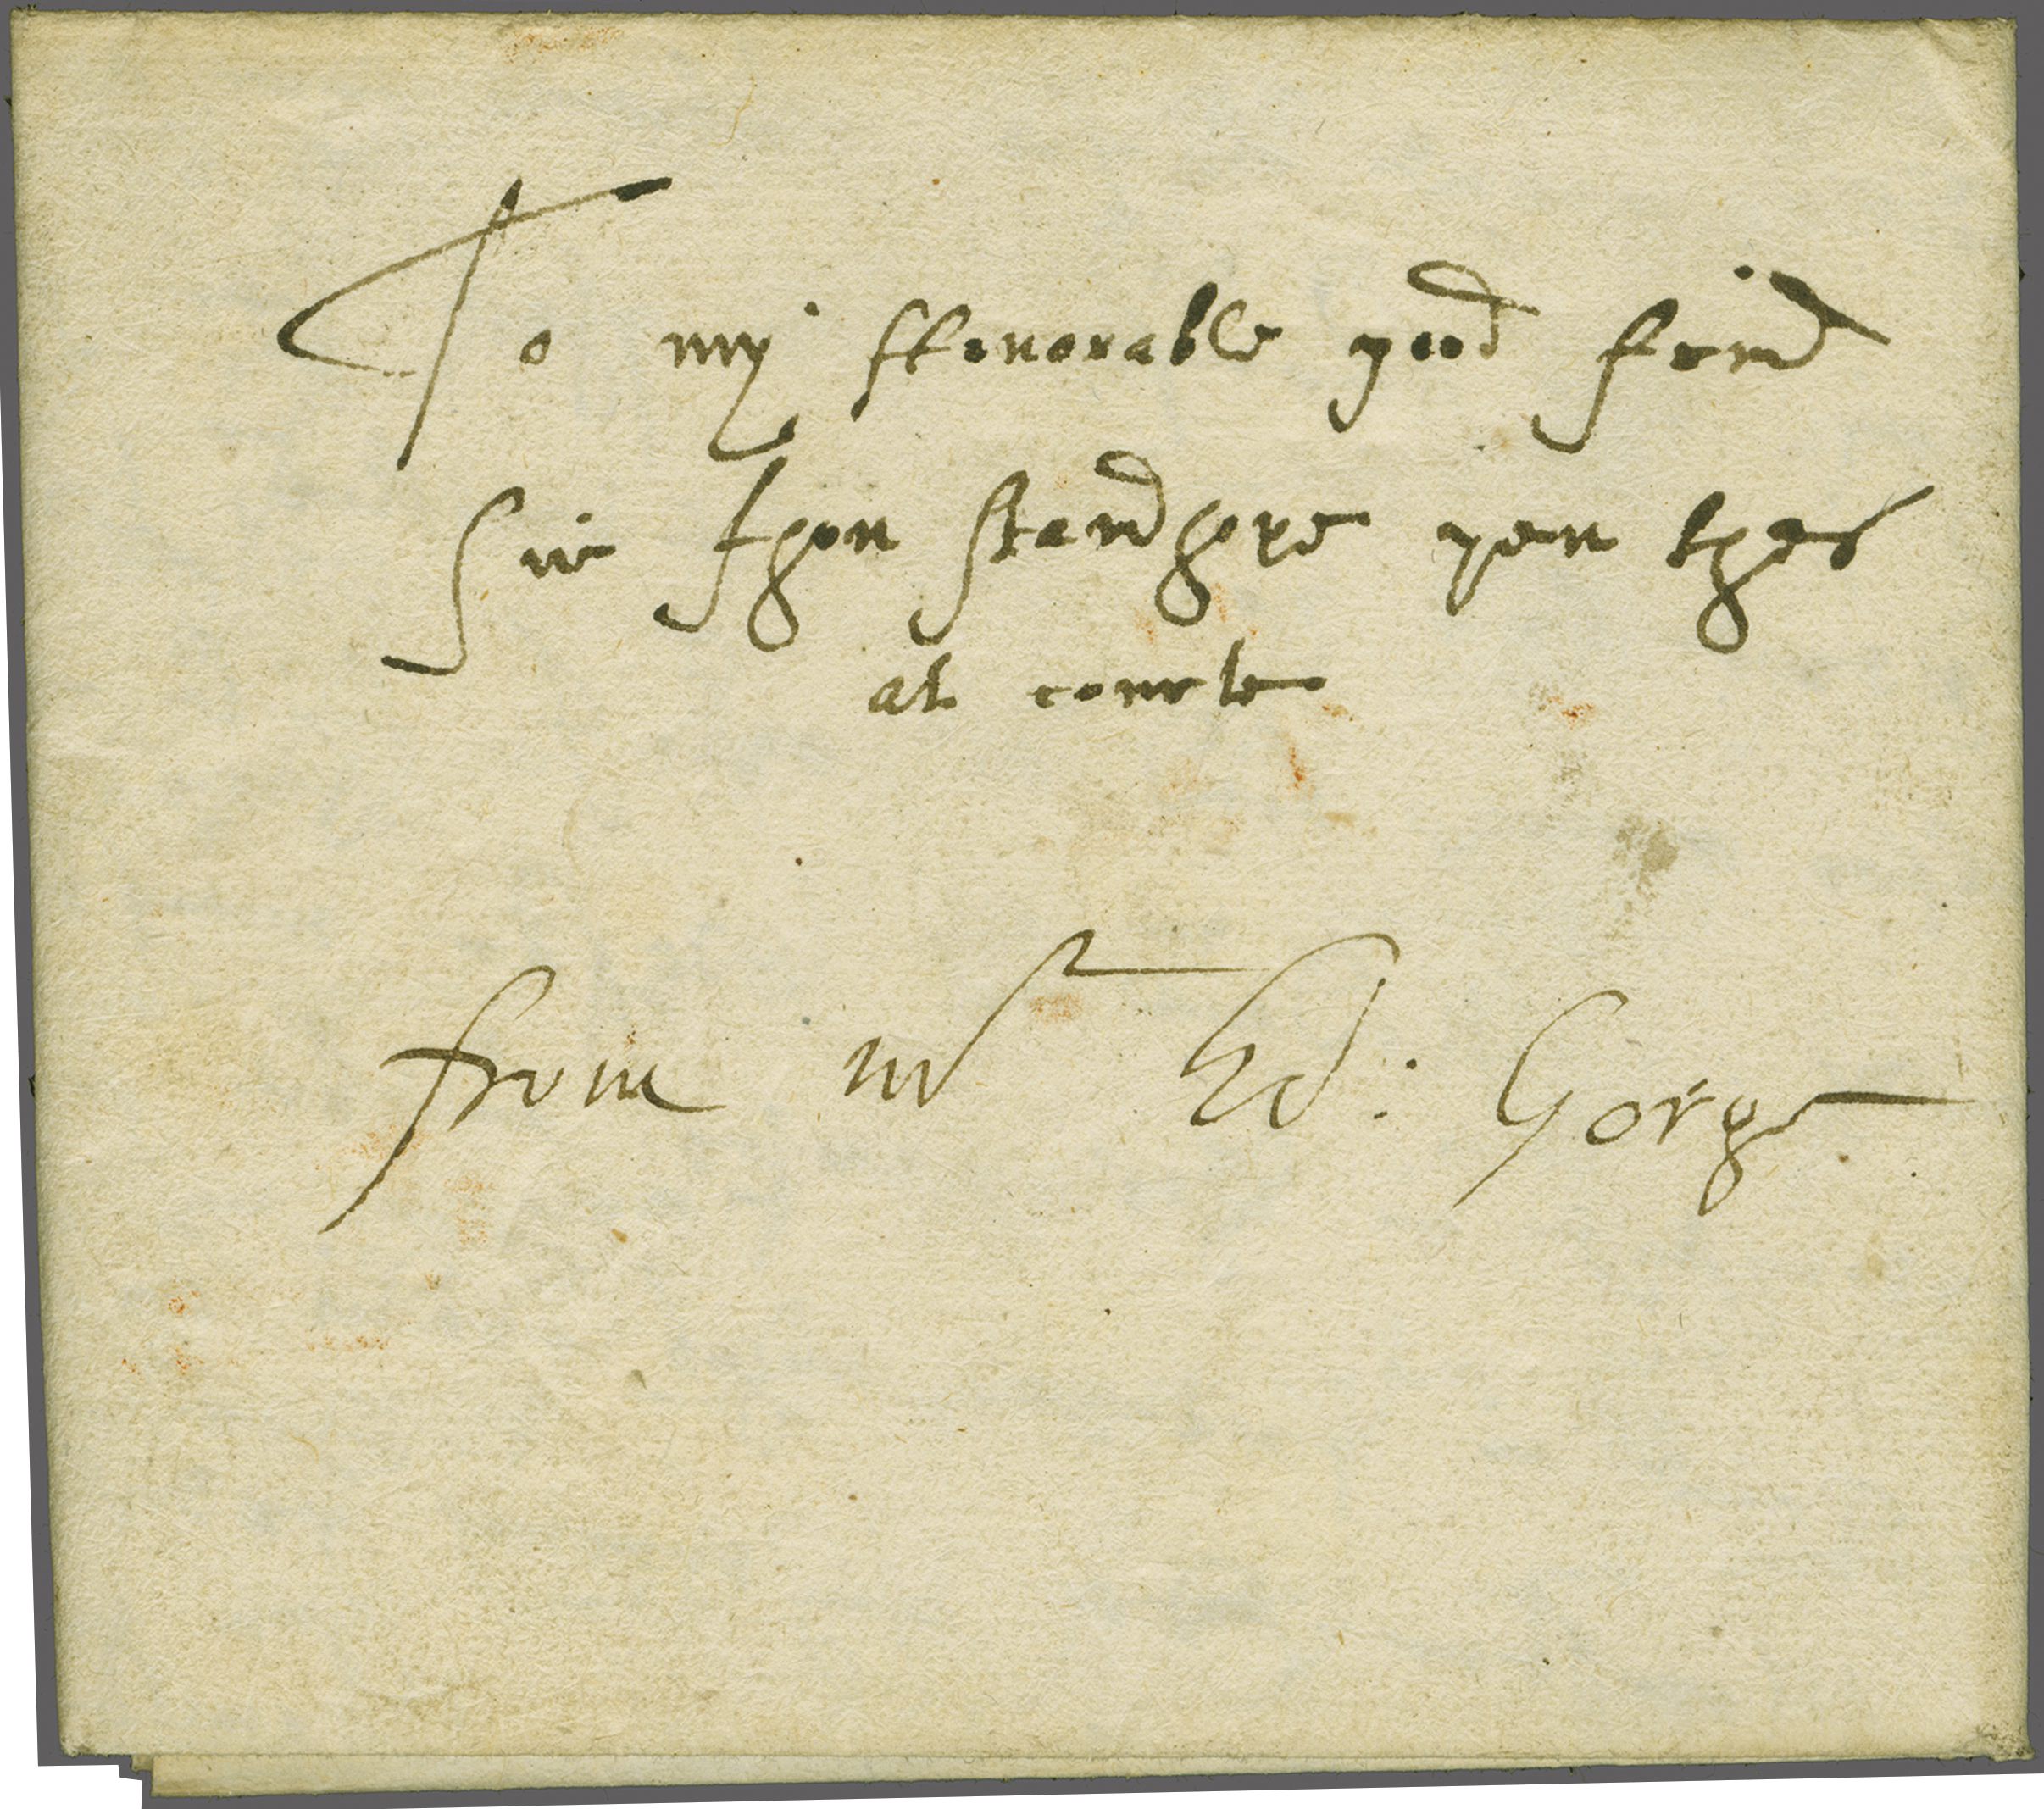 To my Honorable good freind
Sir Jhon Standhope geu thes
at courte
from mr Ed: Gorge